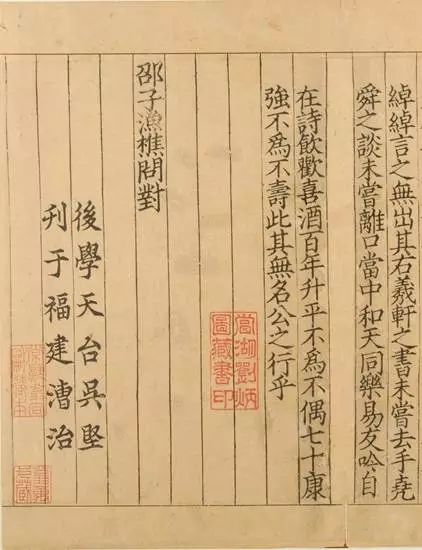 綽綽言之無出其右羲軒之書未嘗去手堯
舜之談未嘗離口當中和天同樂易友吟自
在詩飲歡喜酒百年升平不為不偶七十康
強不為不壽此其無名公之行乎
當湖劉炳
圖藏書印
邵子漁樵問對
後學天台吳堅
刋于福建漕治